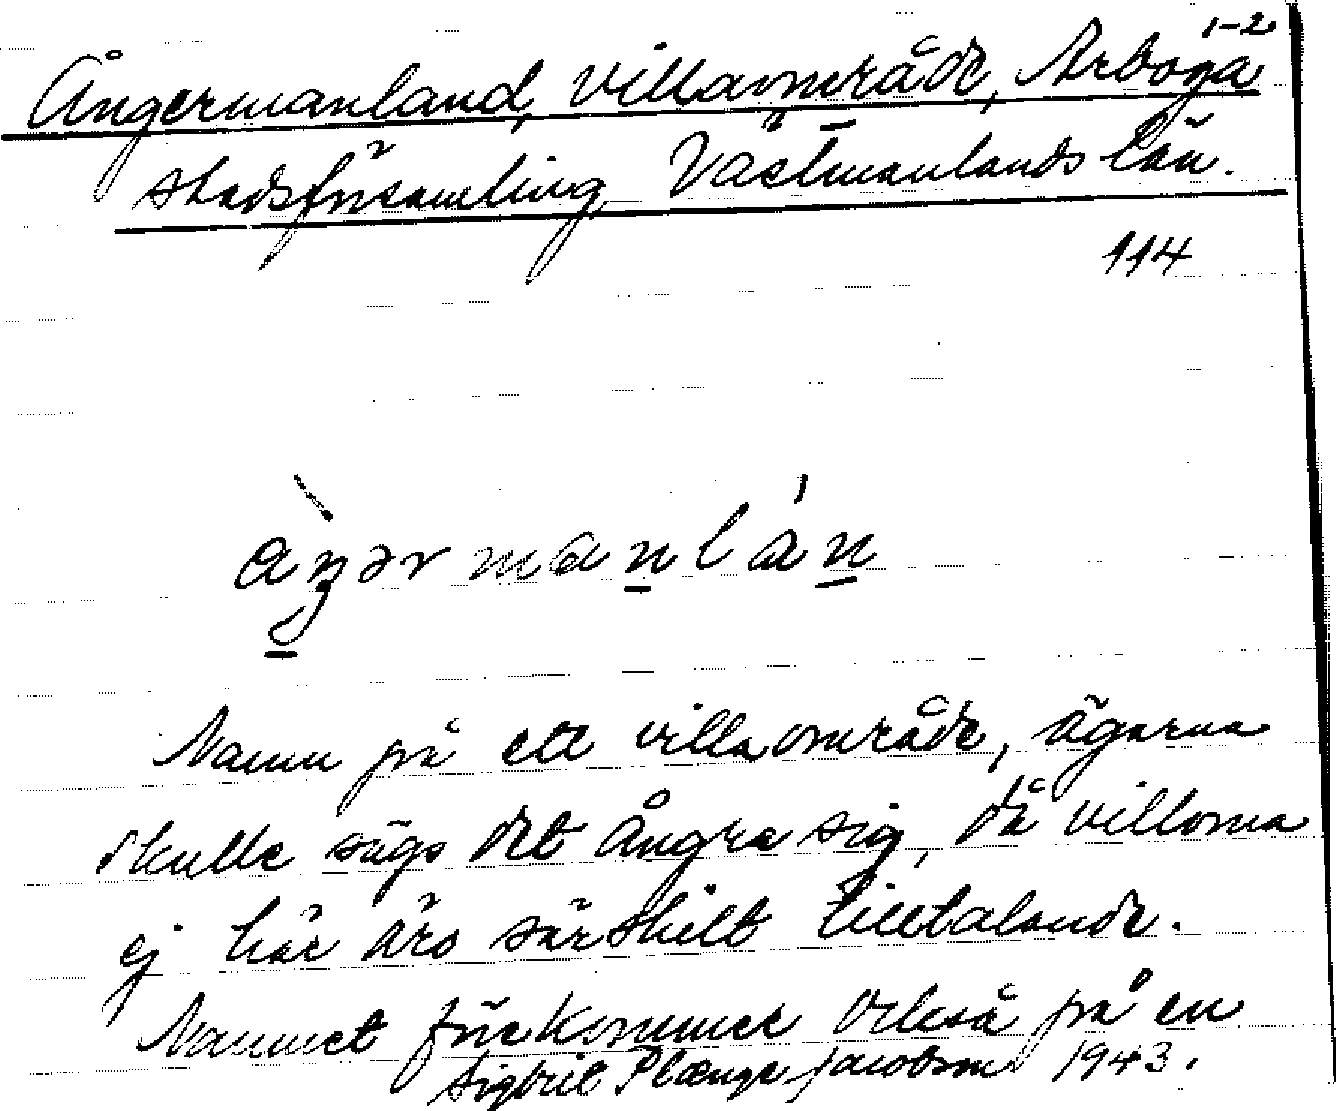 1-2
Ångermanland, villaområde, Arboga
stadsförsamling, Västmanlands län.
114
àŋərmanlán
Namn på ett villaområde, ägarna
skulle sägs det ångra sig, då villorna
ej här äro särskilt tilltalande.
Namnet förekommer också på en
Sigbrit Plænge Jacobson 1943.